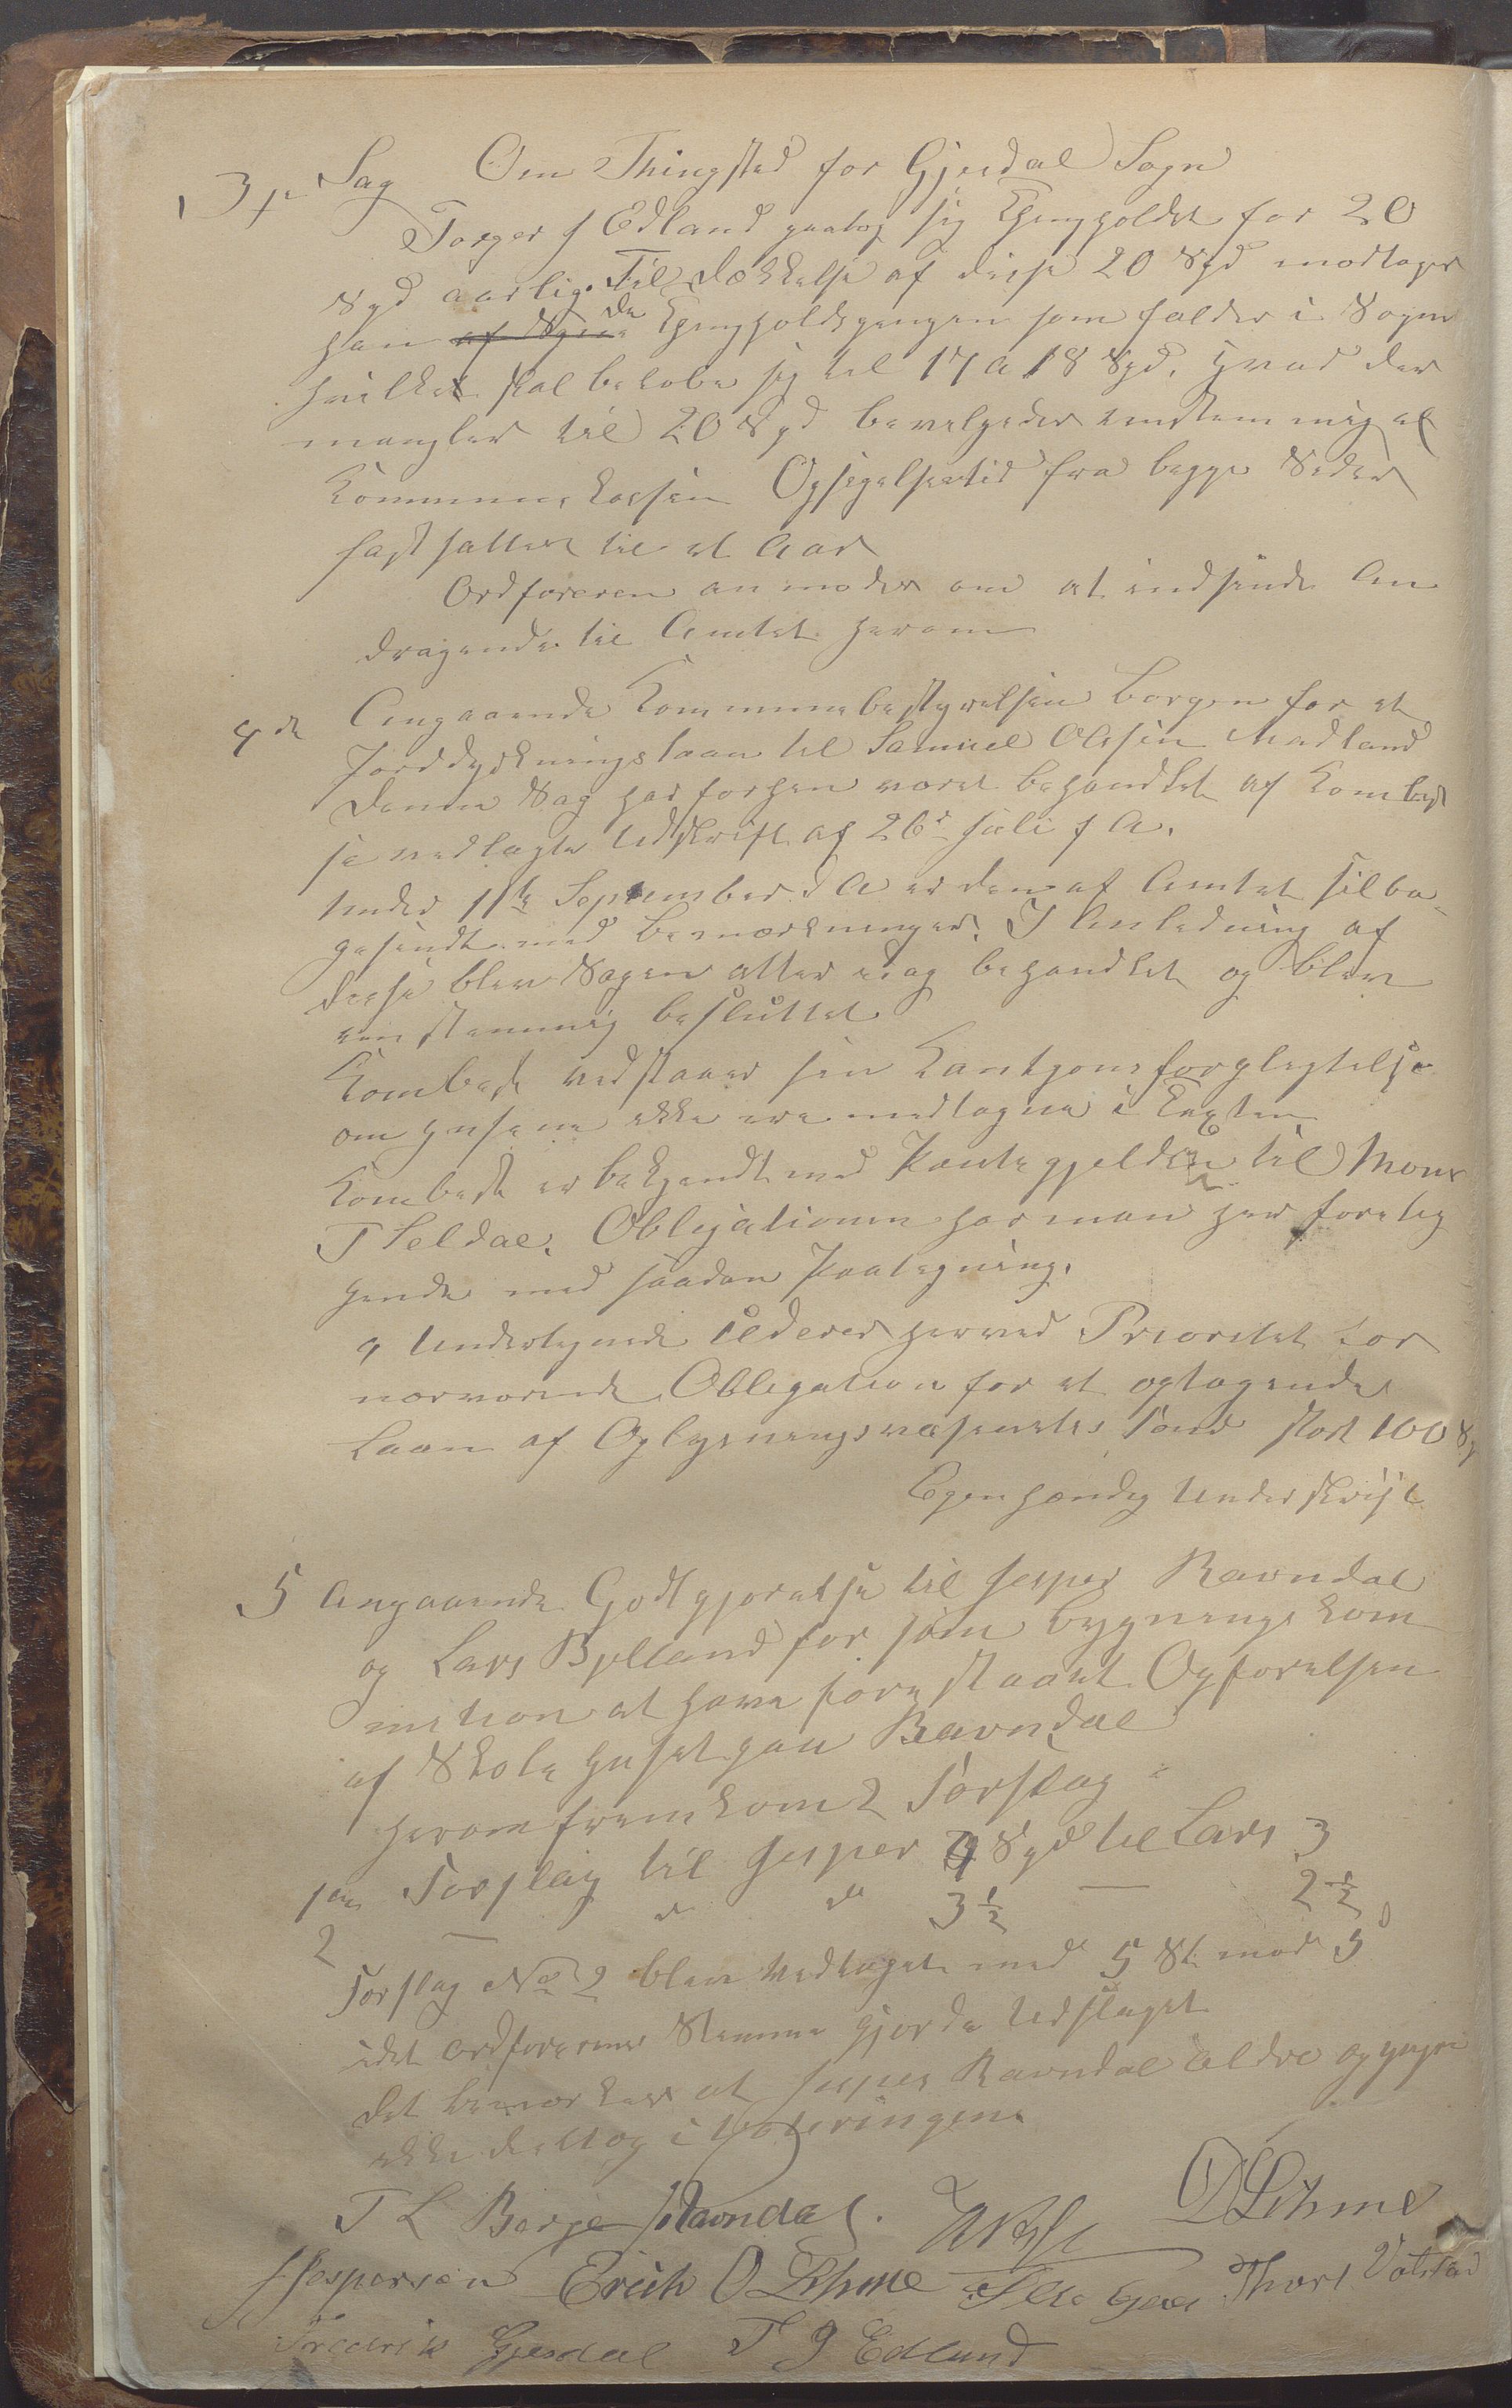 3je Sag Om Thingsted for Gjesdal Sogn
Torger J Edland paatog sig Thingholdet for 20
Spd aarlig. Til Dækkelse af disse 20 Spd modtager
han af de Thingholdspengen som falder i Sogne
hvilket skal beløbe sig til 17 a 18 Spd, hvad der
mangler til 20 Spd bevilgedes enstemmig af
Kommunekassen Opsigelsestid fra begge Sider
fastsattes til et Aar
Ordføreren anmodes om at indsende An
dragende til Amtet herom
4de Angaaende Kommunebestyrelsen Borgen for et
Jorddyrkningslaan til Samuel Olsen Madland
Denne Sag har forhen været behandlet af Kombest
se vedlagte Udskrift af 26de Juli f A.
Under 11te September d A er den af Amtet tilba-
gesendt med Bemærkninger. I Anledning af
disse blev Sagen atter idag behandlet og blev
enstemmig besluttet
Kombest vedstaar sin Kautjonsforpligtelse
om Husene ikke ere medtagne i Taxten
Kombest er bekjendt med Pantegjelden til Mons
T Seldal. Obligationen har man her forelig
gende med saadan Paategning.
" Undertegnede viderer herved Prioritet for
nærværende Obligation for et optagende
Laan af Oplysningsvæsenets Fond stort 100 Sp
Egenhændig Underskrift
5 Angaaende Godtgjørelse til Jesper Ravndal
og Lars Bylland for som Bygningskom
mition at have forestaaet Opførelsen
af Skolehuset paa Ravndal
herom fremkom 2 Forslag
1ste Forslag til Jesper 4 Spd til Lars 3
2 — " " 3½ — 2½
Forslag No 2 blev vedtaget med 5 St mod 5
idet Ordførerens Stemme gjorde Udslaget
det bemærkes at Jesper Ravndal ældre og yngre
ikke deltog i Voteringen
T L Berge JRavndal. O Lihme
J Jespersen Erich O Lihme Thore Votstad
Fredrik Gjesdal T J Edland